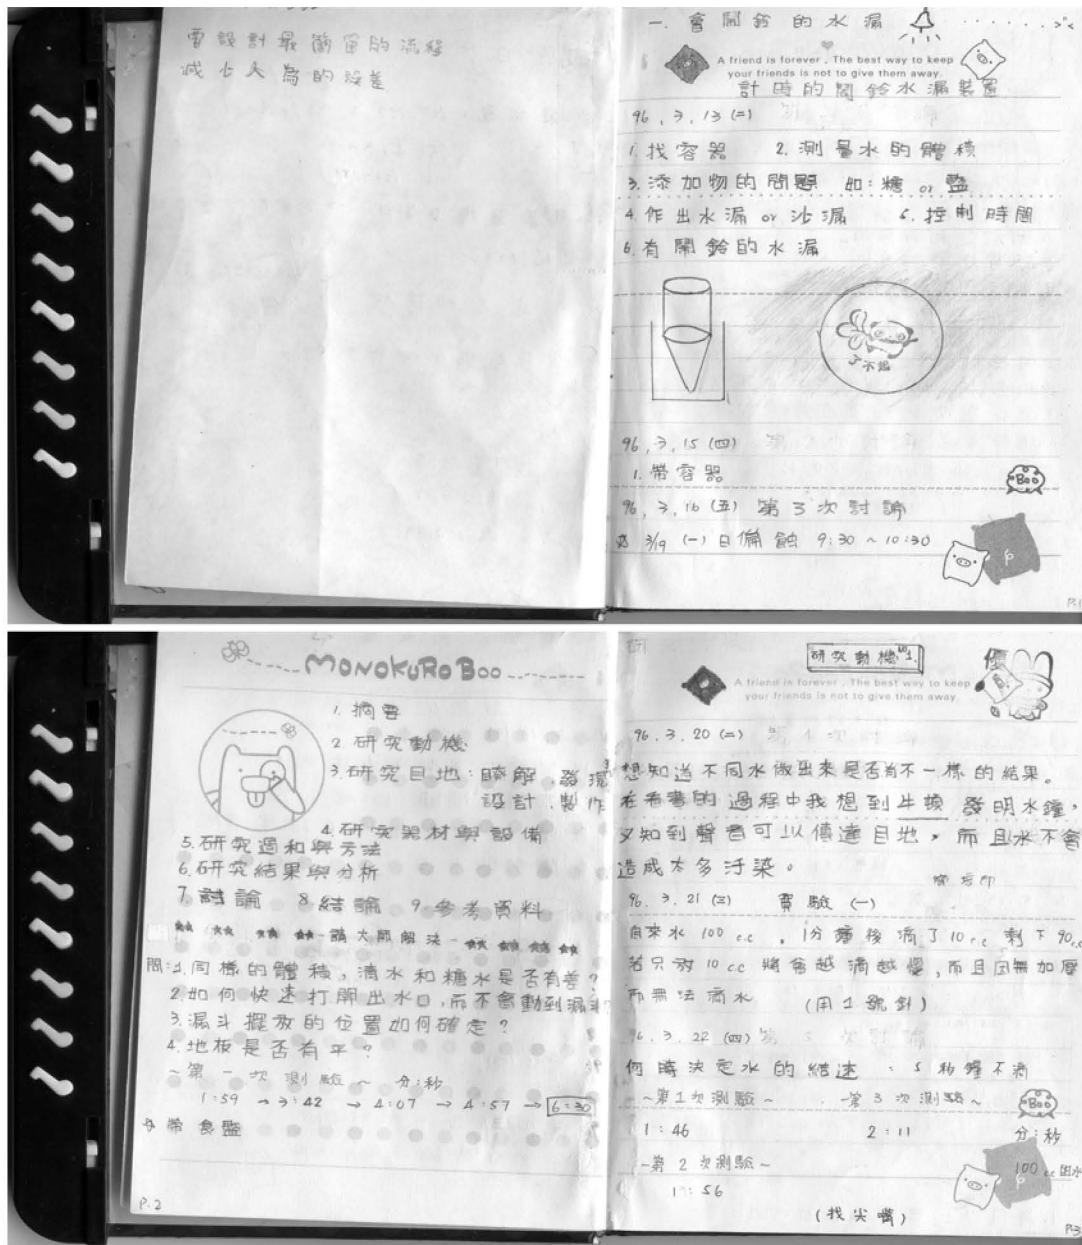 要設計最簡單的流程
減少人為的誤差
一. 會鬧鈴的水漏
A friend is forever. The best way to keep
your friends is not to give them away.
計時的鬧鈴水漏裝置
96, 3, 13 (二)
1. 找容器 2. 測量水的體積
3. 添加物的問題 如:糖 or 鹽
4. 作出水漏 or 沙漏 5. 控制時間
6. 有鬧鈴的水漏
了不起
96, 3, 15 (四)
1. 帶容器
Boo
96, 3, 16 (五) 第3次討論
3/19 (一) 日備蝕 9:30 ~ 10:30
P.1
MONOKURO BOO
1. 摘要
2. 研究動機
3. 研究目地:瞭解、發現
設計、製作
4. 研究器材與設備
5. 研究過和與方法
6. 研究結果與分析
7. 討論 8. 結論 9. 參考資料
請大師解決
問:1. 同樣的體積,清水和糖水是否有差?
2. 如何快速打開出水口,而不會動到漏斗?
3. 漏斗擺放的位置如何確定?
4. 地板是否有平?
~第一次測驗~ 分:秒
1:59 → 3:42 → 4:07 → 4:57 → 6:30
帶食鹽
P.2
研究動機 NO.1
優
A friend is forever. The best way to keep
your friends is not to give them away.
96. 3. 20 (二) 第4次討
想知道不同水做出來是否有不一樣的結果。
在看書的過程中我想到牛頓 發明水鐘,
又知到聲音可以傳達目地,而且水不會
造成太多汙染。
96. 3. 21 (三) 實驗 (一)
自來水 100 c.c. 1分鐘後滴了 10 c.c 剩下 90 c.c
若只放 10 c.c 將會越滴越慢,而且因無加壓
而無法滴水 (用1號針)
96. 3. 22 (四) 第5次討論
何時決定水的結速:5秒鐘不滴
~第1次測驗~ ~第3次測驗~
Boo
1:46 2:11 分:秒
~第2次測驗~
100 cc
1:56
(找尖嘴)
P.3